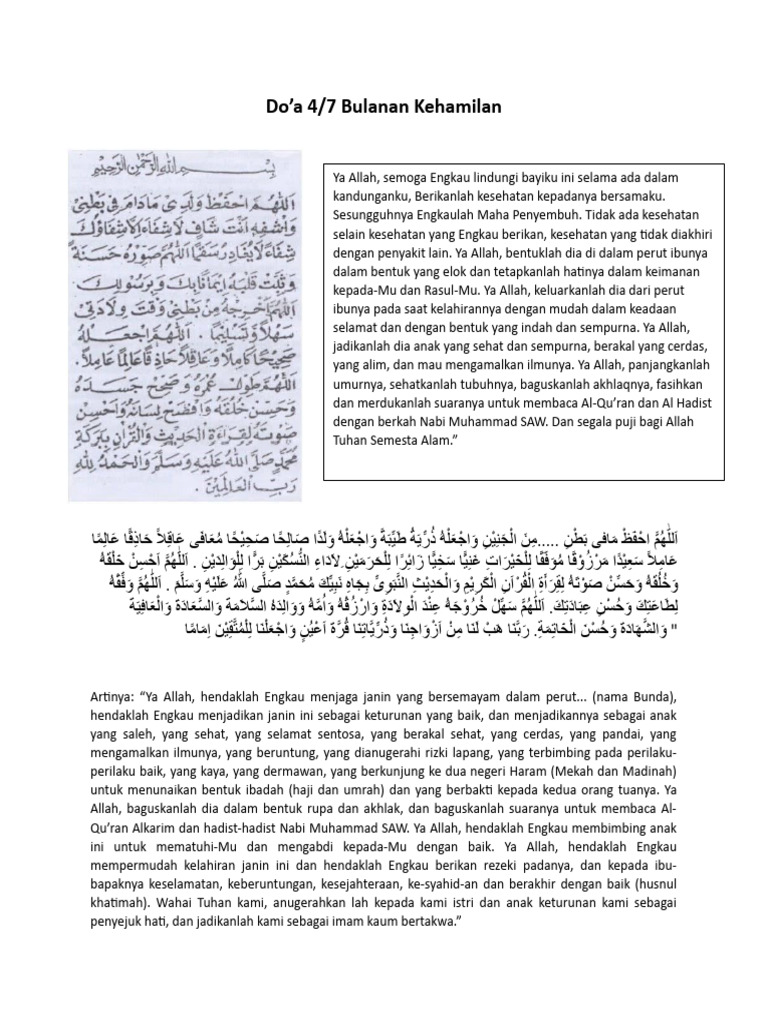 Do’a 4/7 Bulanan Kehamilan
بِسْمِ اللهِ الرَّحْمٰنِ الرَّحِيْمِ
اَللّٰهُمَّ احْفَظْ وَلَدِيْ مَادَامَ فِيْ بَطْنِيْ
وَاشْفِهِ اَنْتَ شَافٍ لَاشِفَاءَ اِلَّا شِفَاؤُكَ
شِفَاءً لَا يُغَادِرُ سَقَمًا اَللّٰهُمَّ صَوِّرْهُ حَسَنَةً
وَثَبِّتْ قَلْبَهُ اِيْمَانًا بِكَ وَبِرَسُوْلِكَ
اَللّٰهُمَّ اَخْرِجْهُ مِنْ بَطْنِيْ وَقْتَ وِلَادَتِيْ
سَهْلًا وَتَسْلِيْمًا . اَللّٰهُمَّ اجْعَلْهُ
صَحِيْحًا كَامِلًا وَعَاقِلًا حَاذِقًا عَالِمًا عَامِلًا.
اَللّٰهُمَّ طَوِّلْ عُمْرَهُ وَصَحِّحْ جَسَدَهُ
وَحَسِّنْ خُلُقَهُ وَافْصَحْ لِسَانَهُ وَاَحْسِنْ
صَوْتَهُ لِقِرَاءَةِ الْحَدِيْثِ وَالْقُرْاٰنِ بِبَرَكَةِ
مُحَمَّدٍ صَلَّى اللهُ عَلَيْهِ وَسَلَّمَ وَالْحَمْدُ لِلّٰهِ
رَبِّ الْعَالَمِيْنَ .
Ya Allah, semoga Engkau lindungi bayiku ini selama ada dalam
kandunganku, Berikanlah kesehatan kepadanya bersamaku.
Sesungguhnya Engkaulah Maha Penyembuh. Tidak ada kesehatan
selain kesehatan yang Engkau berikan, kesehatan yang tidak diakhiri
dengan penyakit lain. Ya Allah, bentuklah dia di dalam perut ibunya
dalam bentuk yang elok dan tetapkanlah hatinya dalam keimanan
kepada-Mu dan Rasul-Mu. Ya Allah, keluarkanlah dia dari perut
ibunya pada saat kelahirannya dengan mudah dalam keadaan
selamat dan dengan bentuk yang indah dan sempurna. Ya Allah,
jadikanlah dia anak yang sehat dan sempurna, berakal yang cerdas,
yang alim, dan mau mengamalkan ilmunya. Ya Allah, panjangkanlah
umurnya, sehatkanlah tubuhnya, baguskanlah akhlaqnya, fasihkan
dan merdukanlah suaranya untuk membaca Al-Qu’ran dan Al Hadist
dengan berkah Nabi Muhammad SAW. Dan segala puji bagi Allah
Tuhan Semesta Alam.”
اَللّٰهُمَّ احْفَظْ مَافِى بَطْنِ .....مِنَ الْجَنِيْنِ وَاجْعَلْهُ ذُرِّيَةُ طَيِّبَةً وَاجْعَلْهُ وَلَدًا صَالِحًا صَحِيْحًا مُعَافَى عَاقِلاً حَاذِقًا عَالِمًا
عَامِلاً سَعِيْدًا مَرْزُوْقًا مُوَفَّقًا لِلْخَيْرَاتِ غَنِيًّا سَخِيًّا زَائِرًا لِلْحَرَمَيْنِ ِلاَدَاءِ النُّسُكَيْنِ بَرًّا لِلْوَالِدَيْنِ . اَللّٰهُمَّ اَحْسِنْ خَلْقَهُ
وَخُلُقَهُ وَحَسِّنْ صَوْتَهُ لِقِرَأَةِ الْقُرْآنِ الْكَرِيْمِ وَالْحَدِيْثِ النَّبَوِيِّ بِجَاهِ نَبِيِّكَ مُحَمَّدٍ صَلَّى اللهُ عَلَيْهِ وَسَلَّمَ . اَللّٰهُمَّ وَفِّقْهُ
لِطَاعَتِكَ وَحُسْنِ عِبَادَتِكَ. اَللّٰهُمَّ سَهِّلْ خُرُوْجَهُ عِنْدَ الْوِلاَدَةِ وَارْزُقْهُ وَاُمَّهُ وَوَالِدَهُ السَّلاَمَةَ وَالسَّعَادَةَ وَالْعَافِيَةَ
وَالشَّهَادَةَ وَحُسْنَ الْخَاتِمَةِ. رَبَّنَا هَبْ لَنَا مِنْ اَزْوَاجِنَا وَذُرِّيَّاتِنَا قُرَّةَ اَعْيُنٍ وَاجْعَلْنَا لِلْمُتَّقِيْنَ اِمَامًا "
Artinya: “Ya Allah, hendaklah Engkau menjaga janin yang bersemayam dalam perut... (nama Bunda),
hendaklah Engkau menjadikan janin ini sebagai keturunan yang baik, dan menjadikannya sebagai anak
yang saleh, yang sehat, yang selamat sentosa, yang berakal sehat, yang cerdas, yang pandai, yang
mengamalkan ilmunya, yang beruntung, yang dianugerahi rizki lapang, yang terbimbing pada perilaku-
perilaku baik, yang kaya, yang dermawan, yang berkunjung ke dua negeri Haram (Mekah dan Madinah)
untuk menunaikan bentuk ibadah (haji dan umrah) dan yang berbakti kepada kedua orang tuanya. Ya
Allah, baguskanlah dia dalam bentuk rupa dan akhlak, dan baguskanlah suaranya untuk membaca Al-
Qu’ran Alkarim dan hadist-hadist Nabi Muhammad SAW. Ya Allah, hendaklah Engkau membimbing anak
ini untuk mematuhi-Mu dan mengabdi kepada-Mu dengan baik. Ya Allah, hendaklah Engkau
mempermudah kelahiran janin ini dan hendaklah Engkau berikan rezeki padanya, dan kepada ibu-
bapaknya keselamatan, keberuntungan, kesejahteraan, ke-syahid-an dan berakhir dengan baik (husnul
khatimah). Wahai Tuhan kami, anugerahkan lah kepada kami istri dan anak keturunan kami sebagai
penyejuk hati, dan jadikanlah kami sebagai imam kaum bertakwa.”